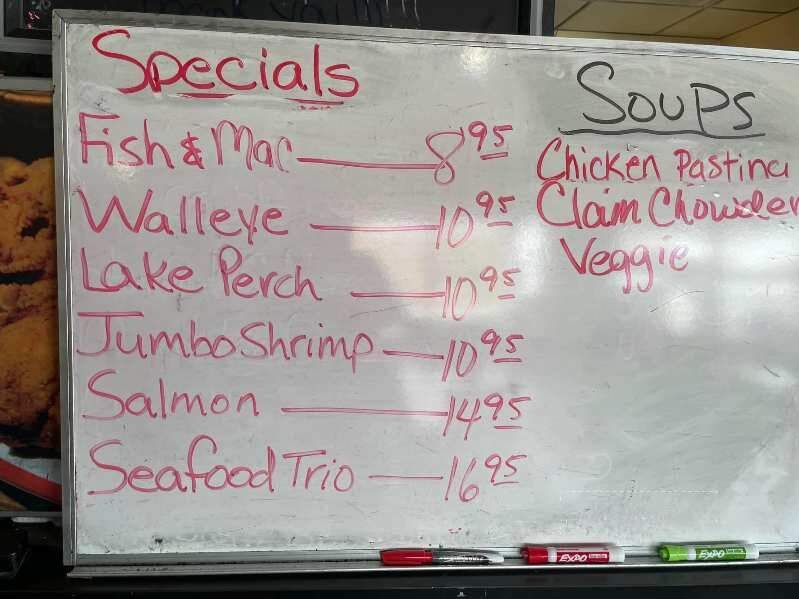 Specials
Fish & Mac 8 95
Walleye 10 95
Lake Perch 10 95
Jumbo Shrimp 10 95
Salmon 14 95
Seafood Trio 16 95
Soups
Chicken Pastina
Claim Chowder
Veggie
EXPO
EXPO